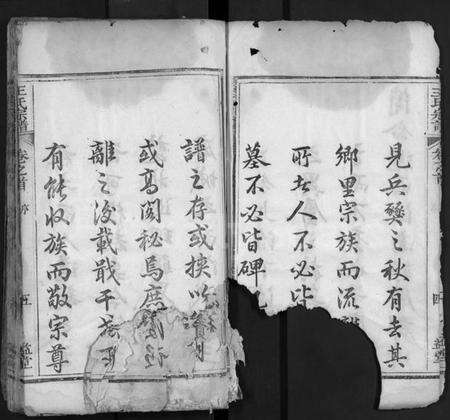 王氏宗譜
見兵燹之秋有去其
鄉里宗族而流
所者人不必
墓不必皆碑
譜之存或挾以
或高閣秘焉
離之後載戢干
有能收族而敬宗尊
王氏宗譜
卷之首
五